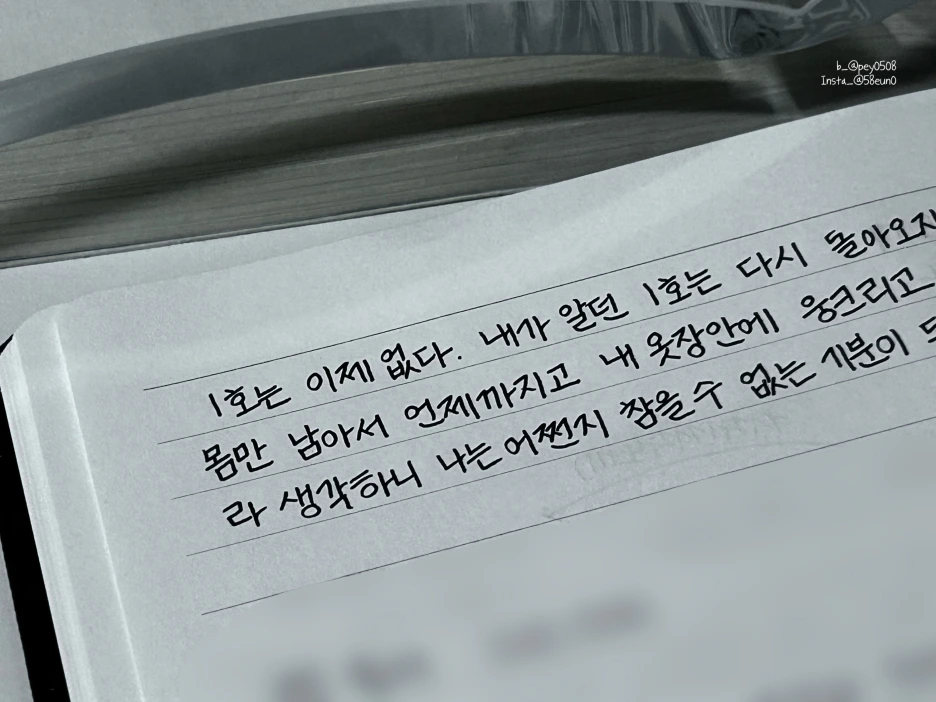 b_@pey0508
Insta_@58eun0
1호는 이제 없다. 내가 알던 1호는 다시 돌아오지
몸만 남아서 언제까지고 내 옷장안에 웅크리고
라 생각하니 나는 어쩐지 참을 수 없는 기분이